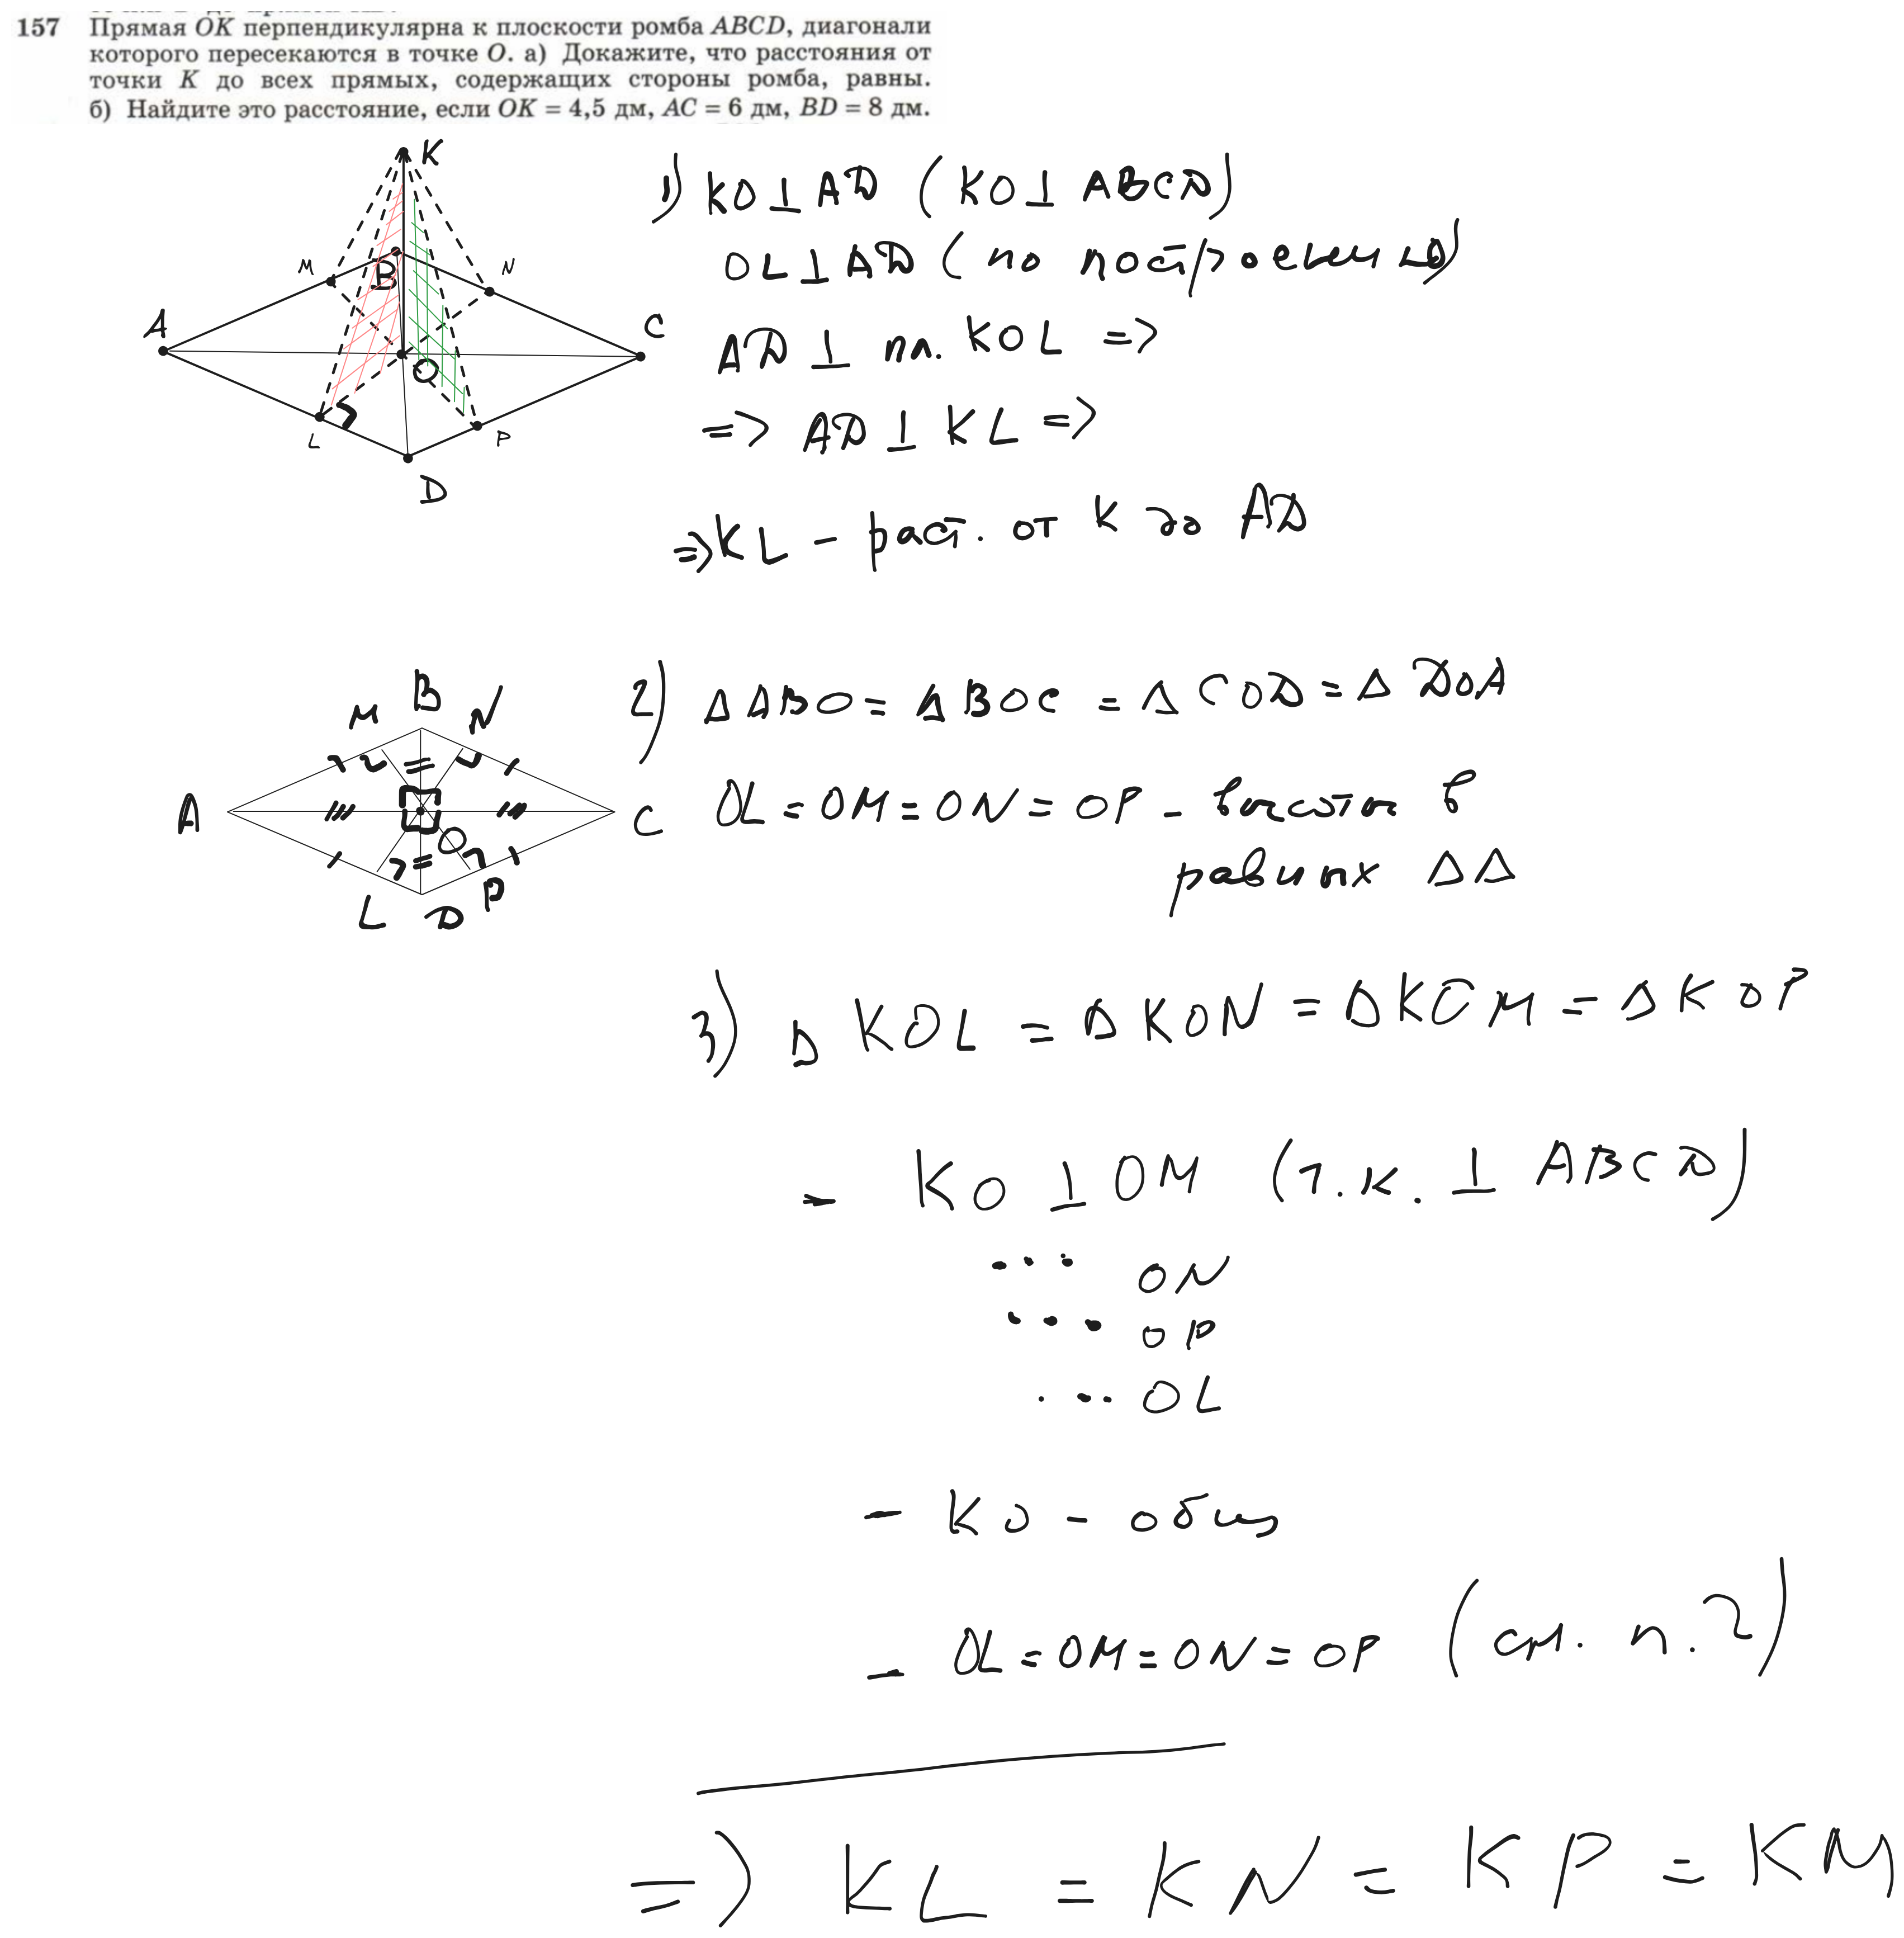 157 Прямая OK перпендикулярна к плоскости ромба ABCD, диагонали
которого пересекаются в точке O. а) Докажите, что расстояния от
точки K до всех прямых, содержащих стороны ромба, равны.
б) Найдите это расстояние, если OK = 4,5 дм, AC = 6 дм, BD = 8 дм.
K
M
B
N
A
C
O
L
P
D
1) KO ⊥ AD (KO ⊥ ABCD)
OL ⊥ AD (по построению)
AD ⊥ пл. KOL =>
=> AD ⊥ KL =>
=> KL - раст. от K до AD
M B N
A
C
O
L D P
2) Δ ABO = Δ BOC = Δ COD = Δ DOA
OL = OM = ON = OP - высоты в
равных ΔΔ
3) Δ KOL = Δ KON = Δ KOM = Δ KOP
- KO ⊥ OM (т.к. ⊥ ABCD)
... ON
... OP
... OL
- KO - общ
- OL = OM = ON = OP (см. п. 2)
=> KL = KN = KP = KM